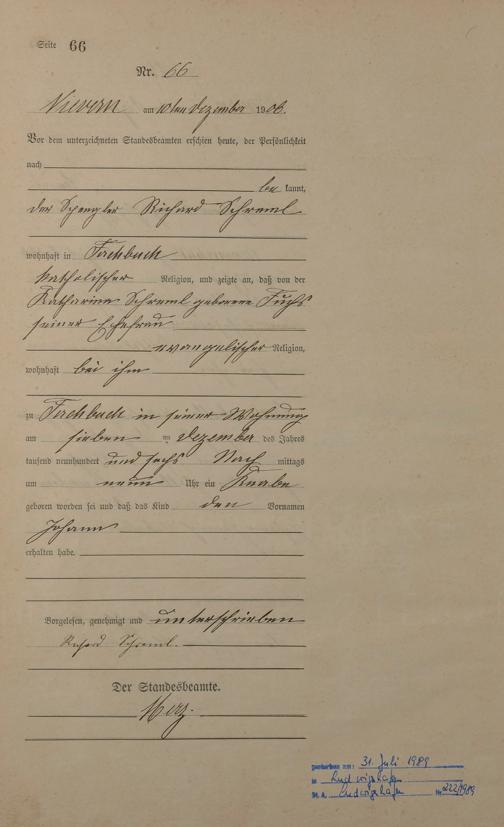 Seite 66
Nr. 66
Nievern am 10ten Dezember 1906.
Vor dem unterzeichneten Standesbeamten erschien heute, der Persönlichkeit
nach
be kannt,
der Spengler Richard Schreml
wohnhaft in Fachbach
katholischer Religion, und zeigte an, daß von der
Katharina Schreml geborene Fuchs
seiner Ehefrau
evangelischer Religion,
wohnhaft bei ihm
zu Fachbach in seiner Wohnung
am sieben ten Dezember des Jahres
tausend neunhundert und sechs Nach mittags
um neun Uhr ein Knabe
geboren worden sei und daß das Kind den Vornamen
Johann
erhalten habe.
Vorgelesen, genehmigt und unterschrieben
Richard Schreml.
Der Standesbeamte.
Gestorben am: 31. Juli 1989
in Ludwigshafen
St. A. Ludwigshafen Nr. 222/1989